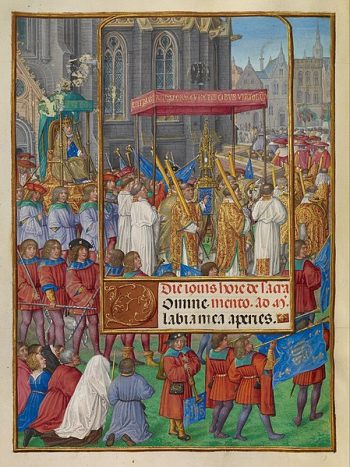 CIBVS
Die iouis hore de sacra
Domine mento. ad m̃.
labia mea aperies.